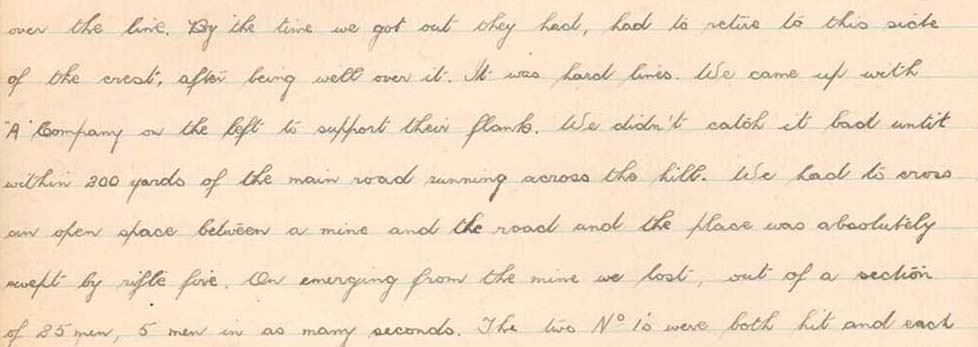 over the line. By the time we got out they had, had to retire to this side
of the crest, after being well over it. It was hard lines. We came up with
"A" Company on the left to support their flank. We didn't catch it bad until
within 200 yards of the main road running across the hill. We had to cross
an open space between a mine and the road and the place was absolutely
swept by rifle fire. On emerging from the mine we lost, out of a section
of 25 men, 5 men in as many seconds. The two Nº 1's were both hit and each